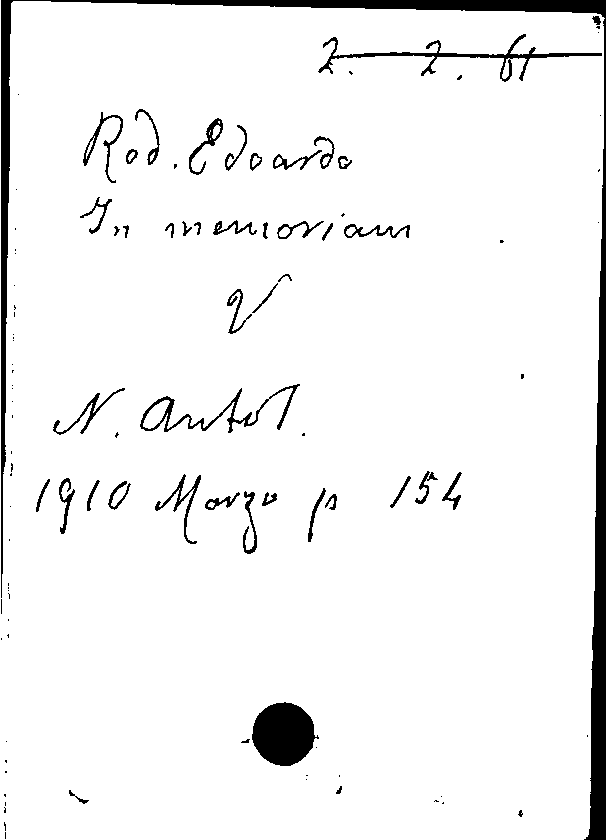 2. 2. 61
Rod. Edoardo
In memoriam
V
N. Antol.
1910 Marzo p 154